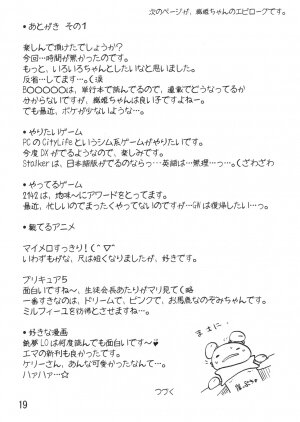 次のページが、織姫ちゃんのエピローグです。
•あとがき その1
楽しんで頂けたでしょうか?
今回…時間が無かったのです。
もっと、いろいろちゃんとしたいなと思いました。
反省…してます…。(涙
BOOOOOは、単行本で読んでるので、連載でどうなってるか
分からないですが、織姫ちゃんは良い子ですよねー。
でも最近、ボケが少ないような…。
•やりたいゲーム
PCのCityLifeというシム系ゲームがやりたいです。
今度DXがでるようなので、楽しみです。
Stalkerは、日本語版がでるのならっ…英語は…無理…っ。(ざわざわ
•やってるゲーム
2142は、地味〜にアワードをとってます。
最近、忙しいのでまったくやってないのですが…GWは復帰したい…っ。
•観てるアニメ
マイメロすっきり!(^▽^
いわずもがな、尺は短くなりましたが、好きです。
プリキュア5
面白いですね〜、生徒会長あたりがマリ見てく略
一番すきなのは、ドリームで、ピンクで、お馬鹿なのぞみちゃんです。
ミルフィーユを彷彿とさせますね…。
•好きな漫画
銃夢LOは何度読んでも面白いです〜♥
エマの新刊も良かったです。
ケリーさん、あんな可愛かったなんて…。
ハアハァ…☆
まさに、
つづく
19